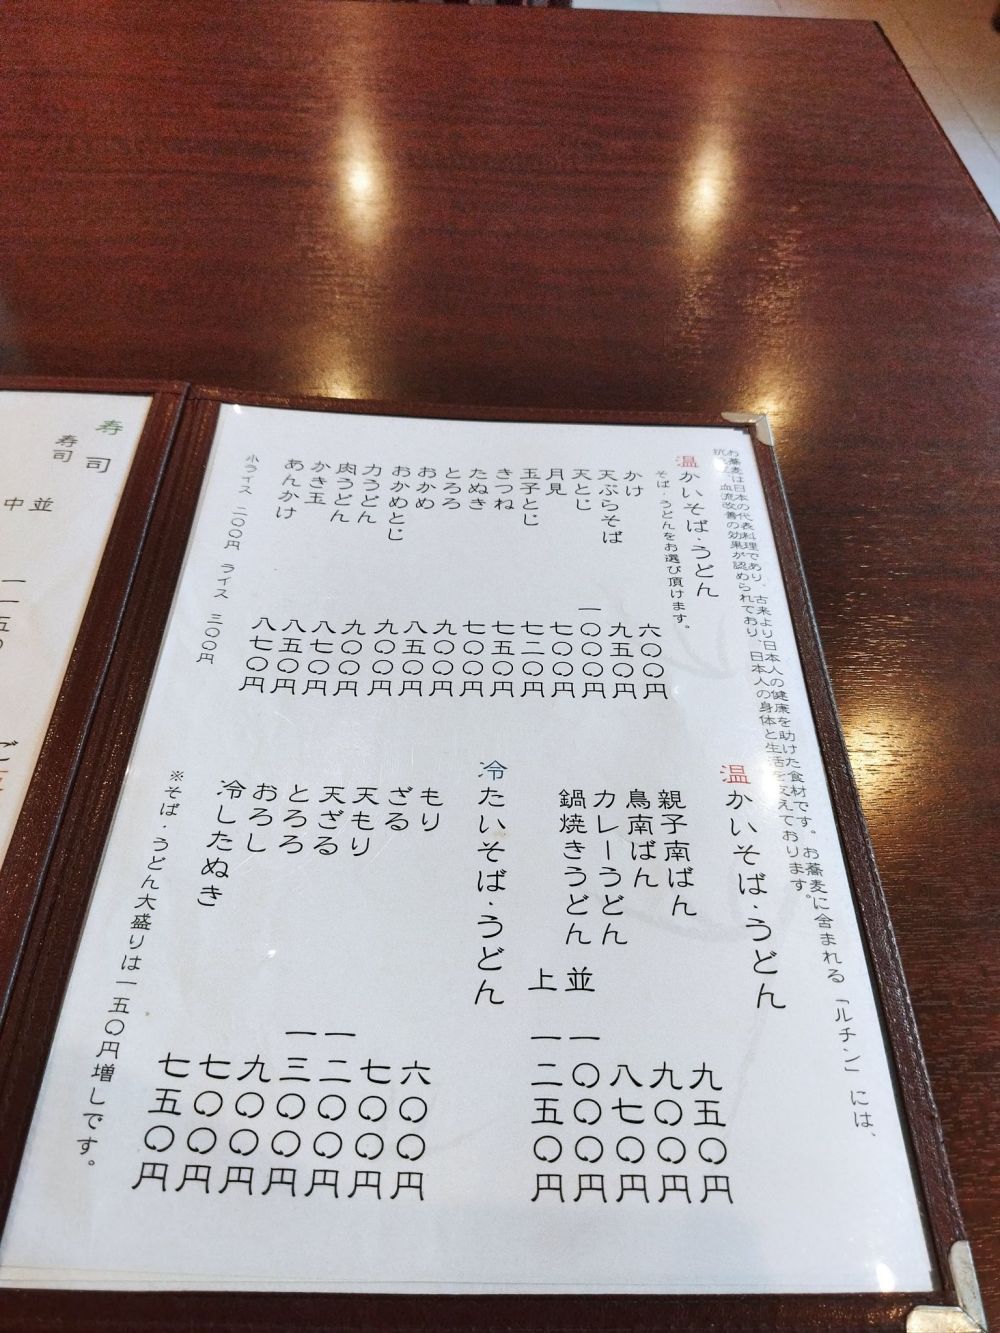 お蕎麦は日本の代表料理であり、古来より日本人の健康を助けた食材です。お蕎麦に含まれる「ルチン」には、
血流改善の効果が認められており、日本人の身体と生活を支えております。
温かいそば・うどん
そば・うどんをお選び頂けます。
かけ 六〇〇円
天ぷらそば 九五〇円
天とじ 一〇〇〇円
月見 七〇〇円
玉子とじ 七二〇円
きつね 七五〇円
たぬき 七〇〇円
とろろ 九〇〇円
おかめ 八五〇円
おかめとじ 九〇〇円
力うどん 九〇〇円
肉うどん 八七〇円
かき玉 八五〇円
あんかけ 八七〇円
小ライス 二〇〇円 ライス 三〇〇円
温かいそば・うどん
親子南ばん 九五〇円
鳥南ばん 九〇〇円
カレーうどん 八七〇円
鍋焼きうどん 並 一〇〇〇円
上 一二五〇円
冷たいそば・うどん
もり 六〇〇円
ざる 七〇〇円
天もり 一二〇〇円
天ざる 一三〇〇円
とろろ 九〇〇円
おろし 七〇〇円
冷したぬき 七五〇円
※そば・うどん大盛りは一五〇円増しです。
寿司
寿司 並 一一五〇
中